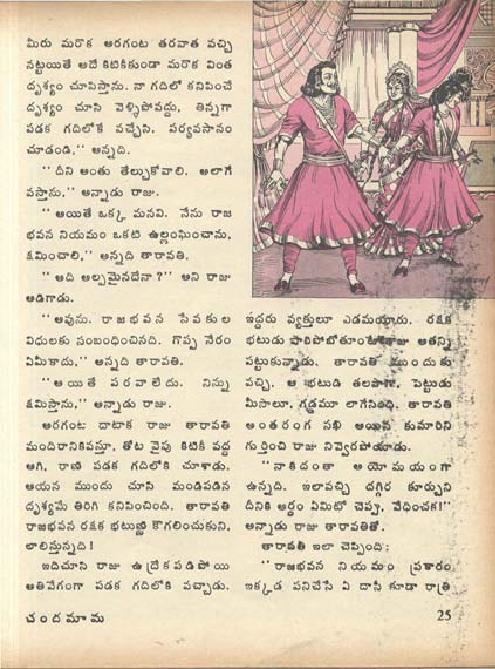 మీరు మరొక అరగంట తరవాత వచ్చి
నట్టయితే అదే కిటికీకుండా మరొక వింత
దృశ్యం చూపిస్తాను. నా గదిలో కనిపించే
దృశ్యం చూసి వెళ్ళిపోవద్దు, తిన్నగా
పడక గదిలోకే వచ్చేసి, పర్యవసానం
చూడండి,'' అన్నది.
'' దీని అంతు తేల్చుకోవాలి. అలాగే
వస్తాను,'' అన్నాడు రాజు.
'' అయితే ఒక్క మనవి. నేను రాజ
భవన నియమం ఒకటి ఉల్లంఘించాను,
క్షమించాలి,'' అన్నది తారావతి.
'' అది అల్పమైనదేనా ?'' అని రాజు
అడిగాడు.
'' అవును. రాజభవన సేవకుల
విధులకు సంబంధించినది. గొప్ప నేరం
ఏమీకాదు,'' అన్నది తారావతి.
'' అయితే పరవాలేదు. నిన్ను
క్షమిస్తాను,'' అన్నాడు రాజు.
అరగంట దాటాక రాజు తారావతి
మందిరానికివస్తూ, తోట వైపు కిటికీ వద్ద
ఆగి, రాణి పడక గదిలోకి చూశాడు.
ఆయన ముందు చూసి మండిపడిన
దృశ్యమే తిరిగి కనిపించింది. తారావతి
రాజభవన రక్షక భటుణ్ణి కౌగలించుకుని,
లాలిస్తున్నది !
ఇదిచూసి రాజు ఉద్రేకపడిపోయి
అతివేగంగా పడక గదిలోకి వచ్చాడు.
ఇద్దరు వ్యక్తులూ ఎడమయ్యారు. రక్షక
భటుడు పారిపోబోతూంటే రాజు అతన్ని
పట్టుకున్నాడు. తారావతి ముందుకు
వచ్చి, ఆ భటుడి తలపాగా, పెట్టుడు
మీసాలూ, గడ్డమూ లాగేసింది. తారావతి
అంతరంగ సఖి అయిన కుమారిని
గుర్తించి రాజు నివ్వెరపోయాడు.
'' నాకిదంతా అయోమయంగా
ఉన్నది. ఇలావచ్చి దగ్గిర కూర్చుని
దీనికి అర్థం ఏమిటో చెప్పు, వేధించక!''
అన్నాడు రాజు తారావతితో.
తారావతి ఇలా చెప్పింది:
'' రాజభవన నియమం ప్రకారం
ఇక్కడ పనిచేసే ఏ దాసీ కూడా రాత్రి
చందమామ
25